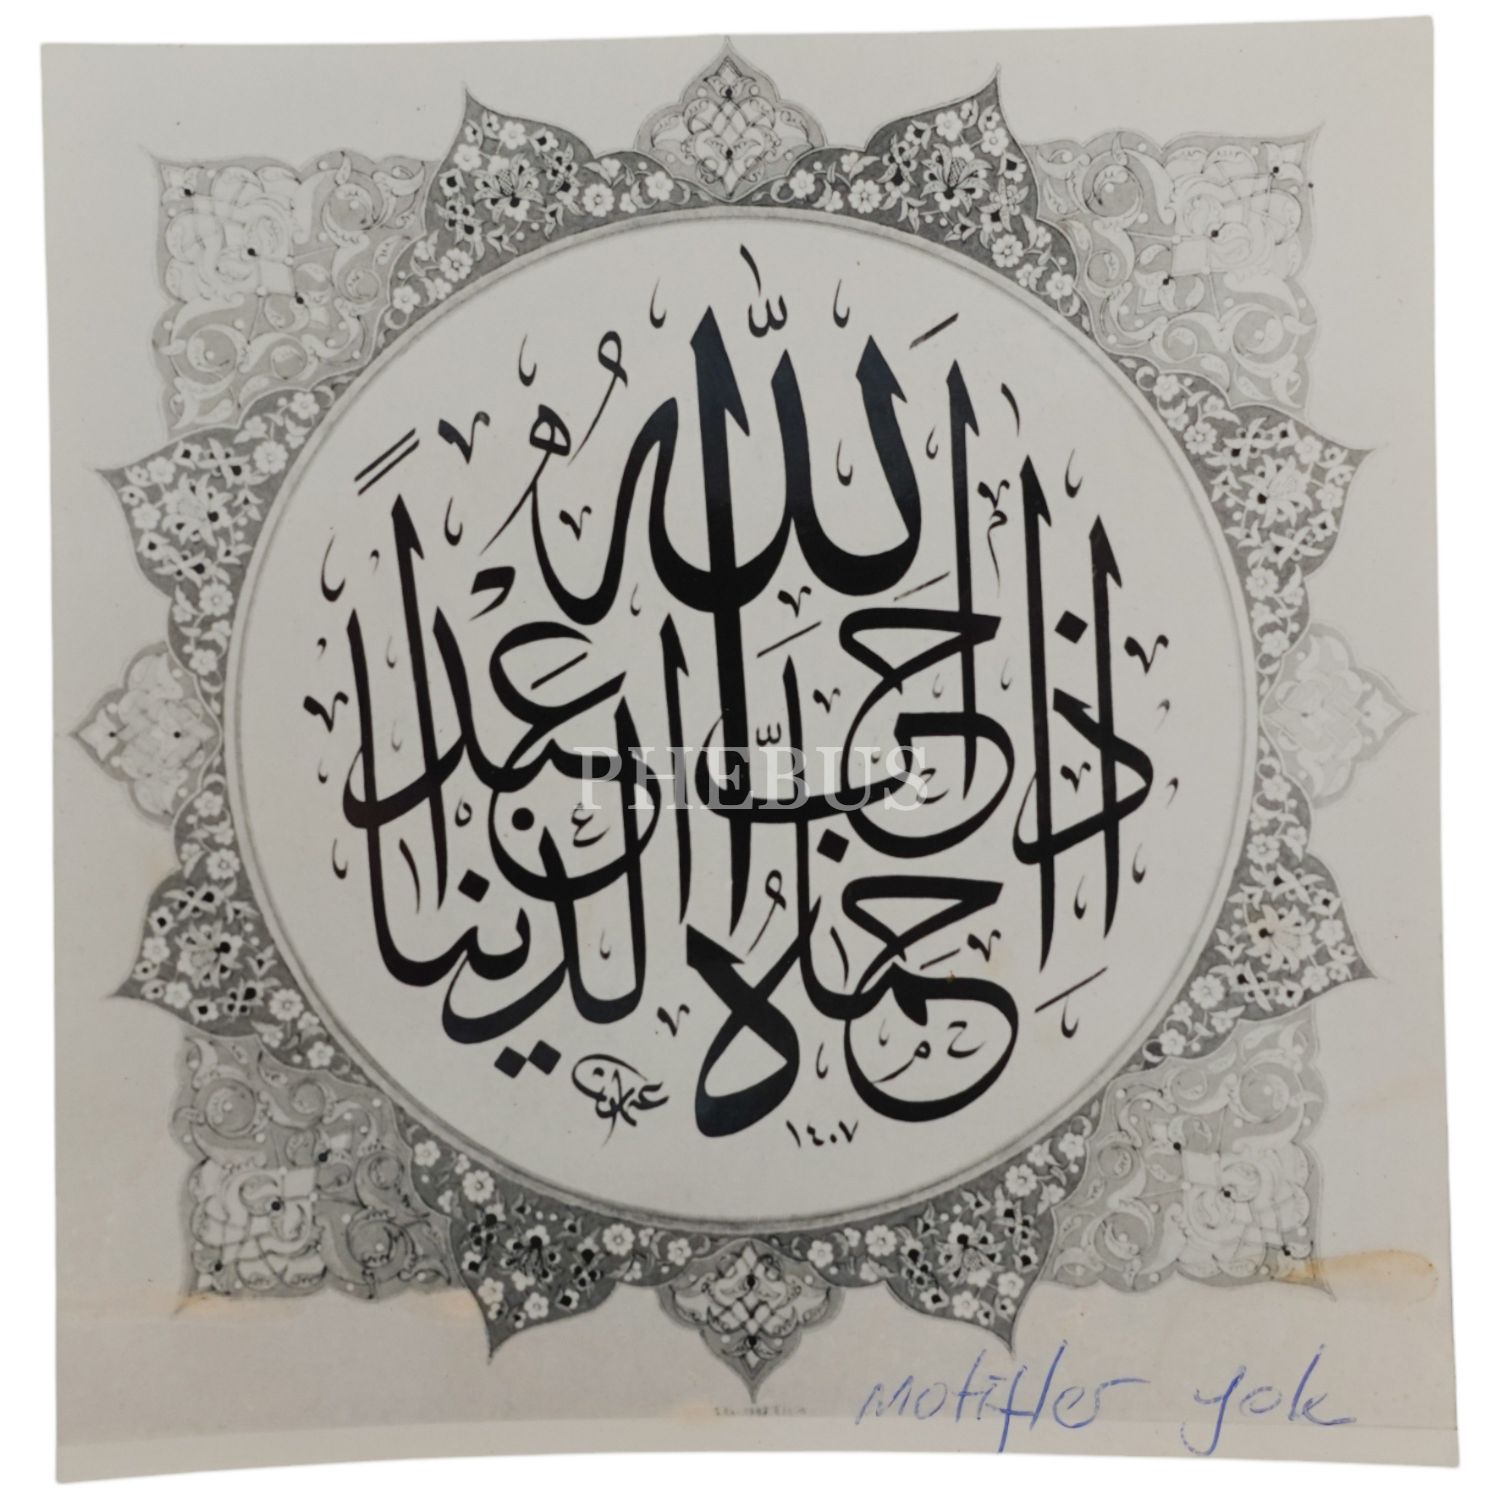 إِذَا أَحَبَّ اللّٰهُ عَبْدًا حَمَاهُ الدُّنْيَا
١٤٠٧
PHEBUS
motifler yok